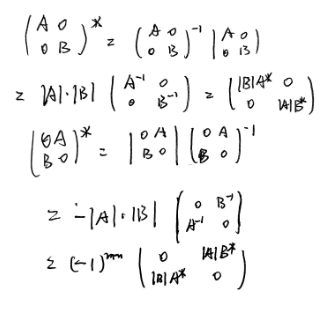 (A 0
0 B)* = (A 0
0 B)⁻¹ |A 0
0 B|
= |A|·|B| (A⁻¹ 0
0 B⁻¹) = (|B|A* 0
0 |A|B*)
(0 A
B 0)* = |0 A
B 0| (0 A
B 0)⁻¹
= -|A|·|B| (0 B⁻¹
A⁻¹ 0)
= (-1)ᵐⁿ (0 |A|B*
|B|A* 0)